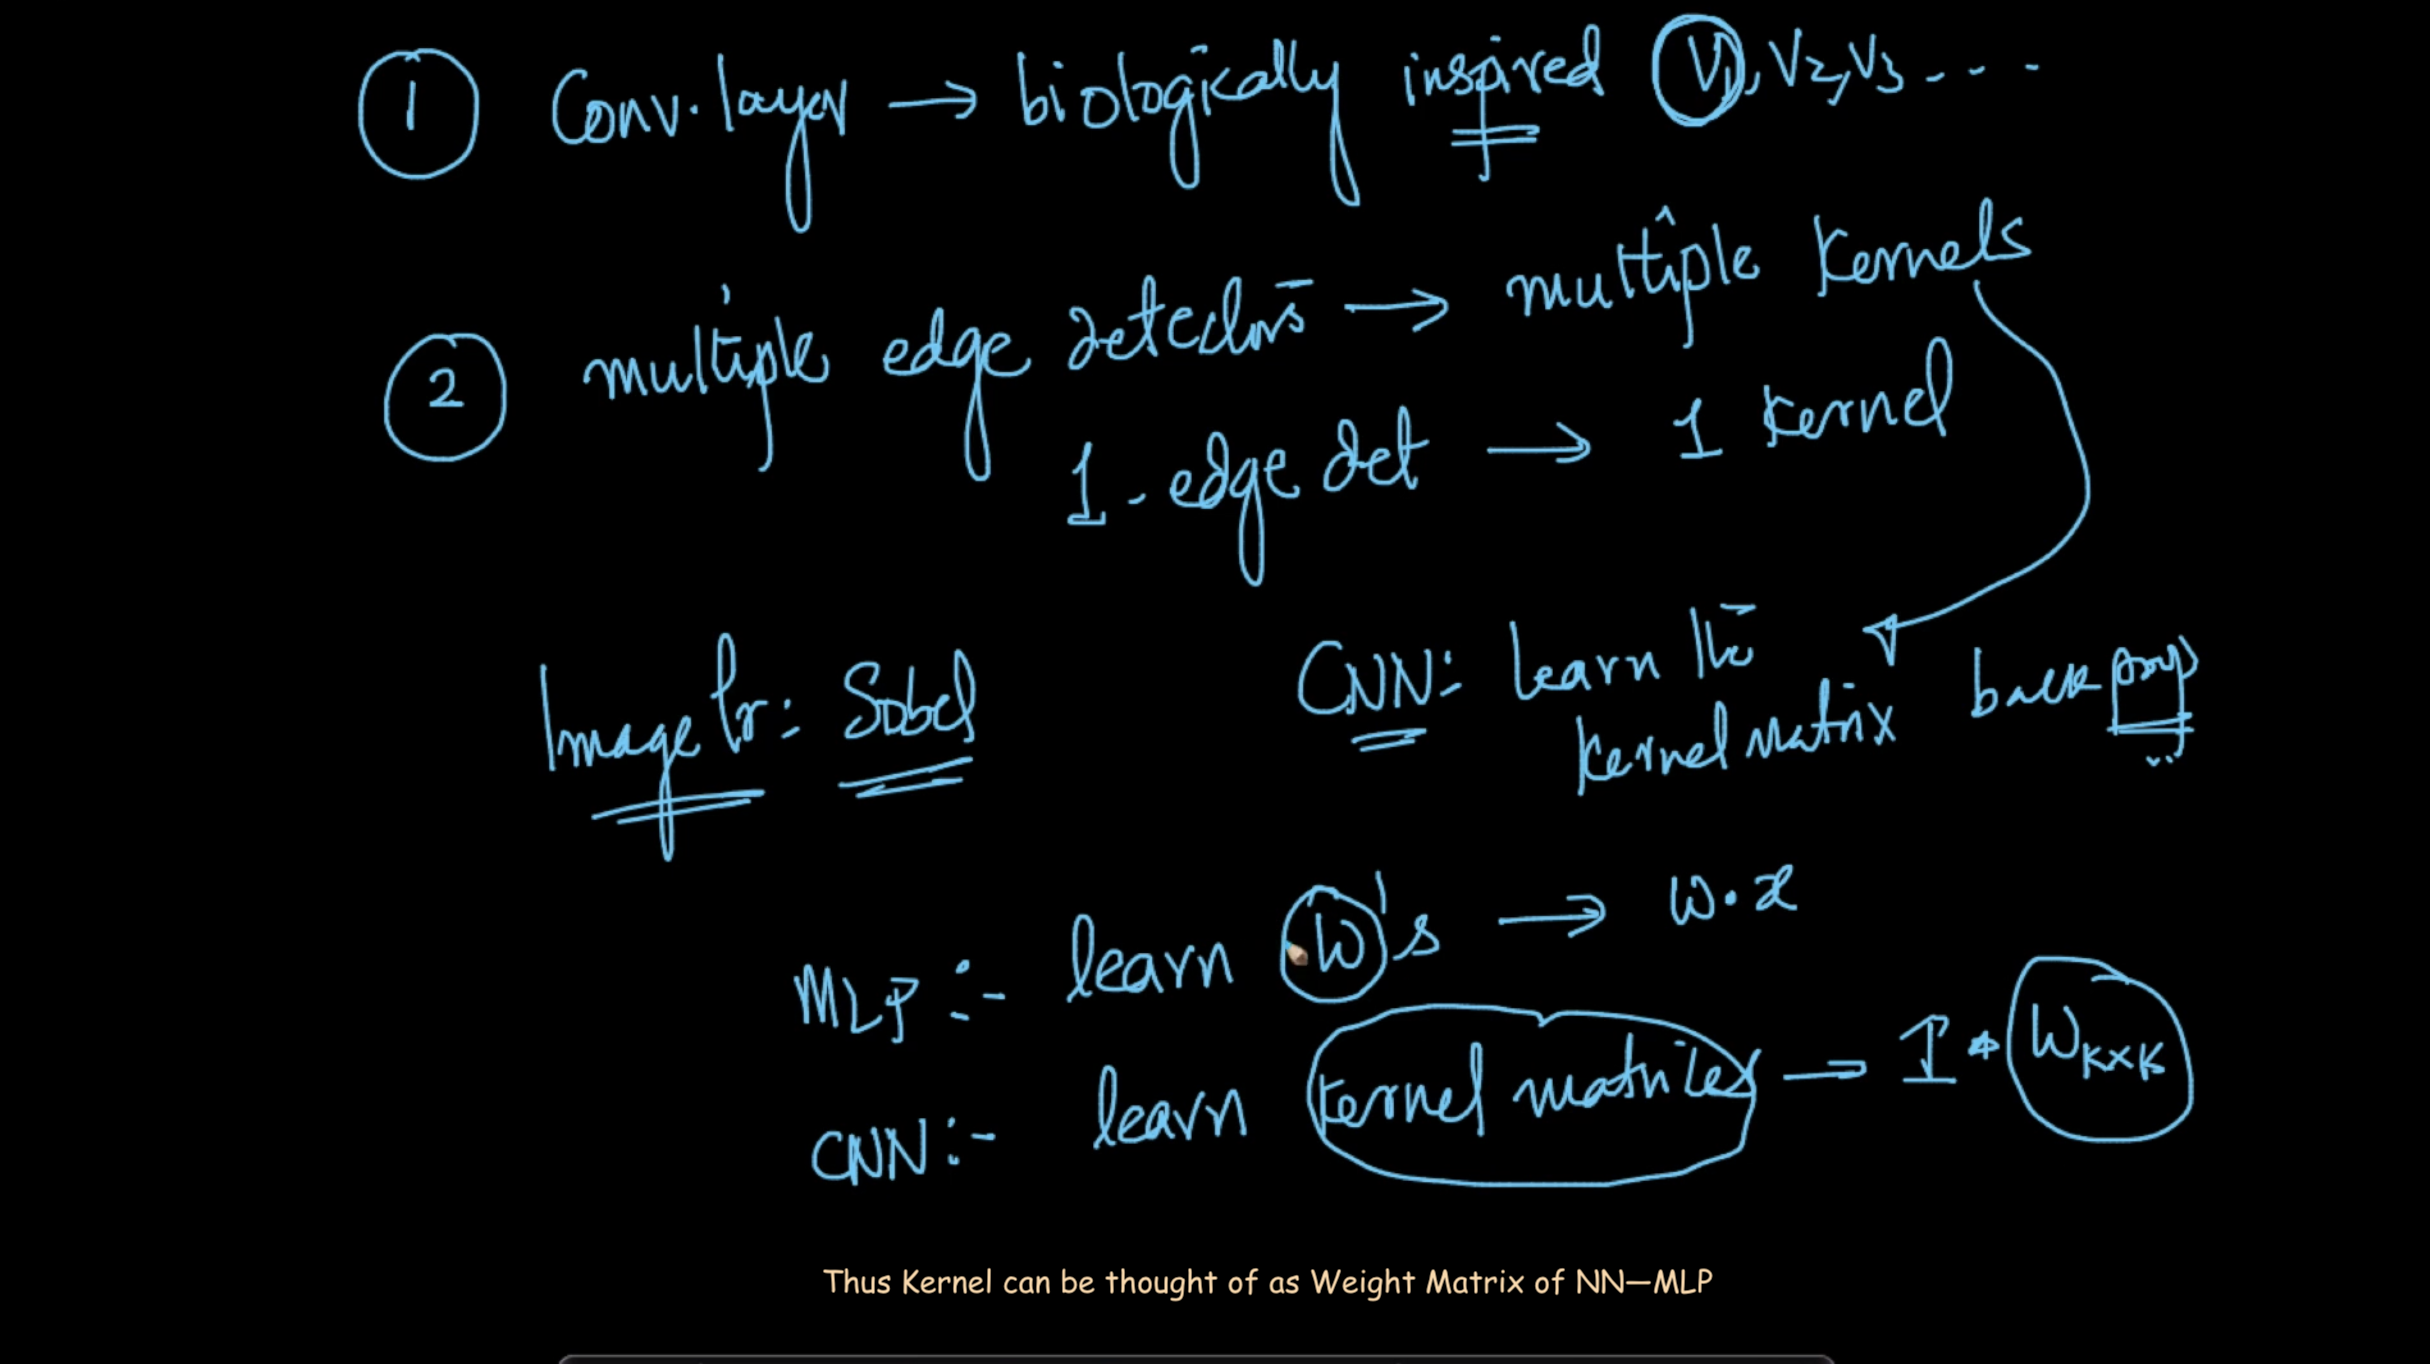 1 Conv. layer → biologically inspired V1, V2, V3 - - -
2 multiple edge detectors → multiple Kernels
1 - edge det → 1 Kernel
Image Pr: Sobel
CNN: learn the
kernel matrix backprop
MLP :- learn W's → W.x
CNN :- learn kernel matrices = I * W K×K
Thus Kernel can be thought of as Weight Matrix of NN—MLP